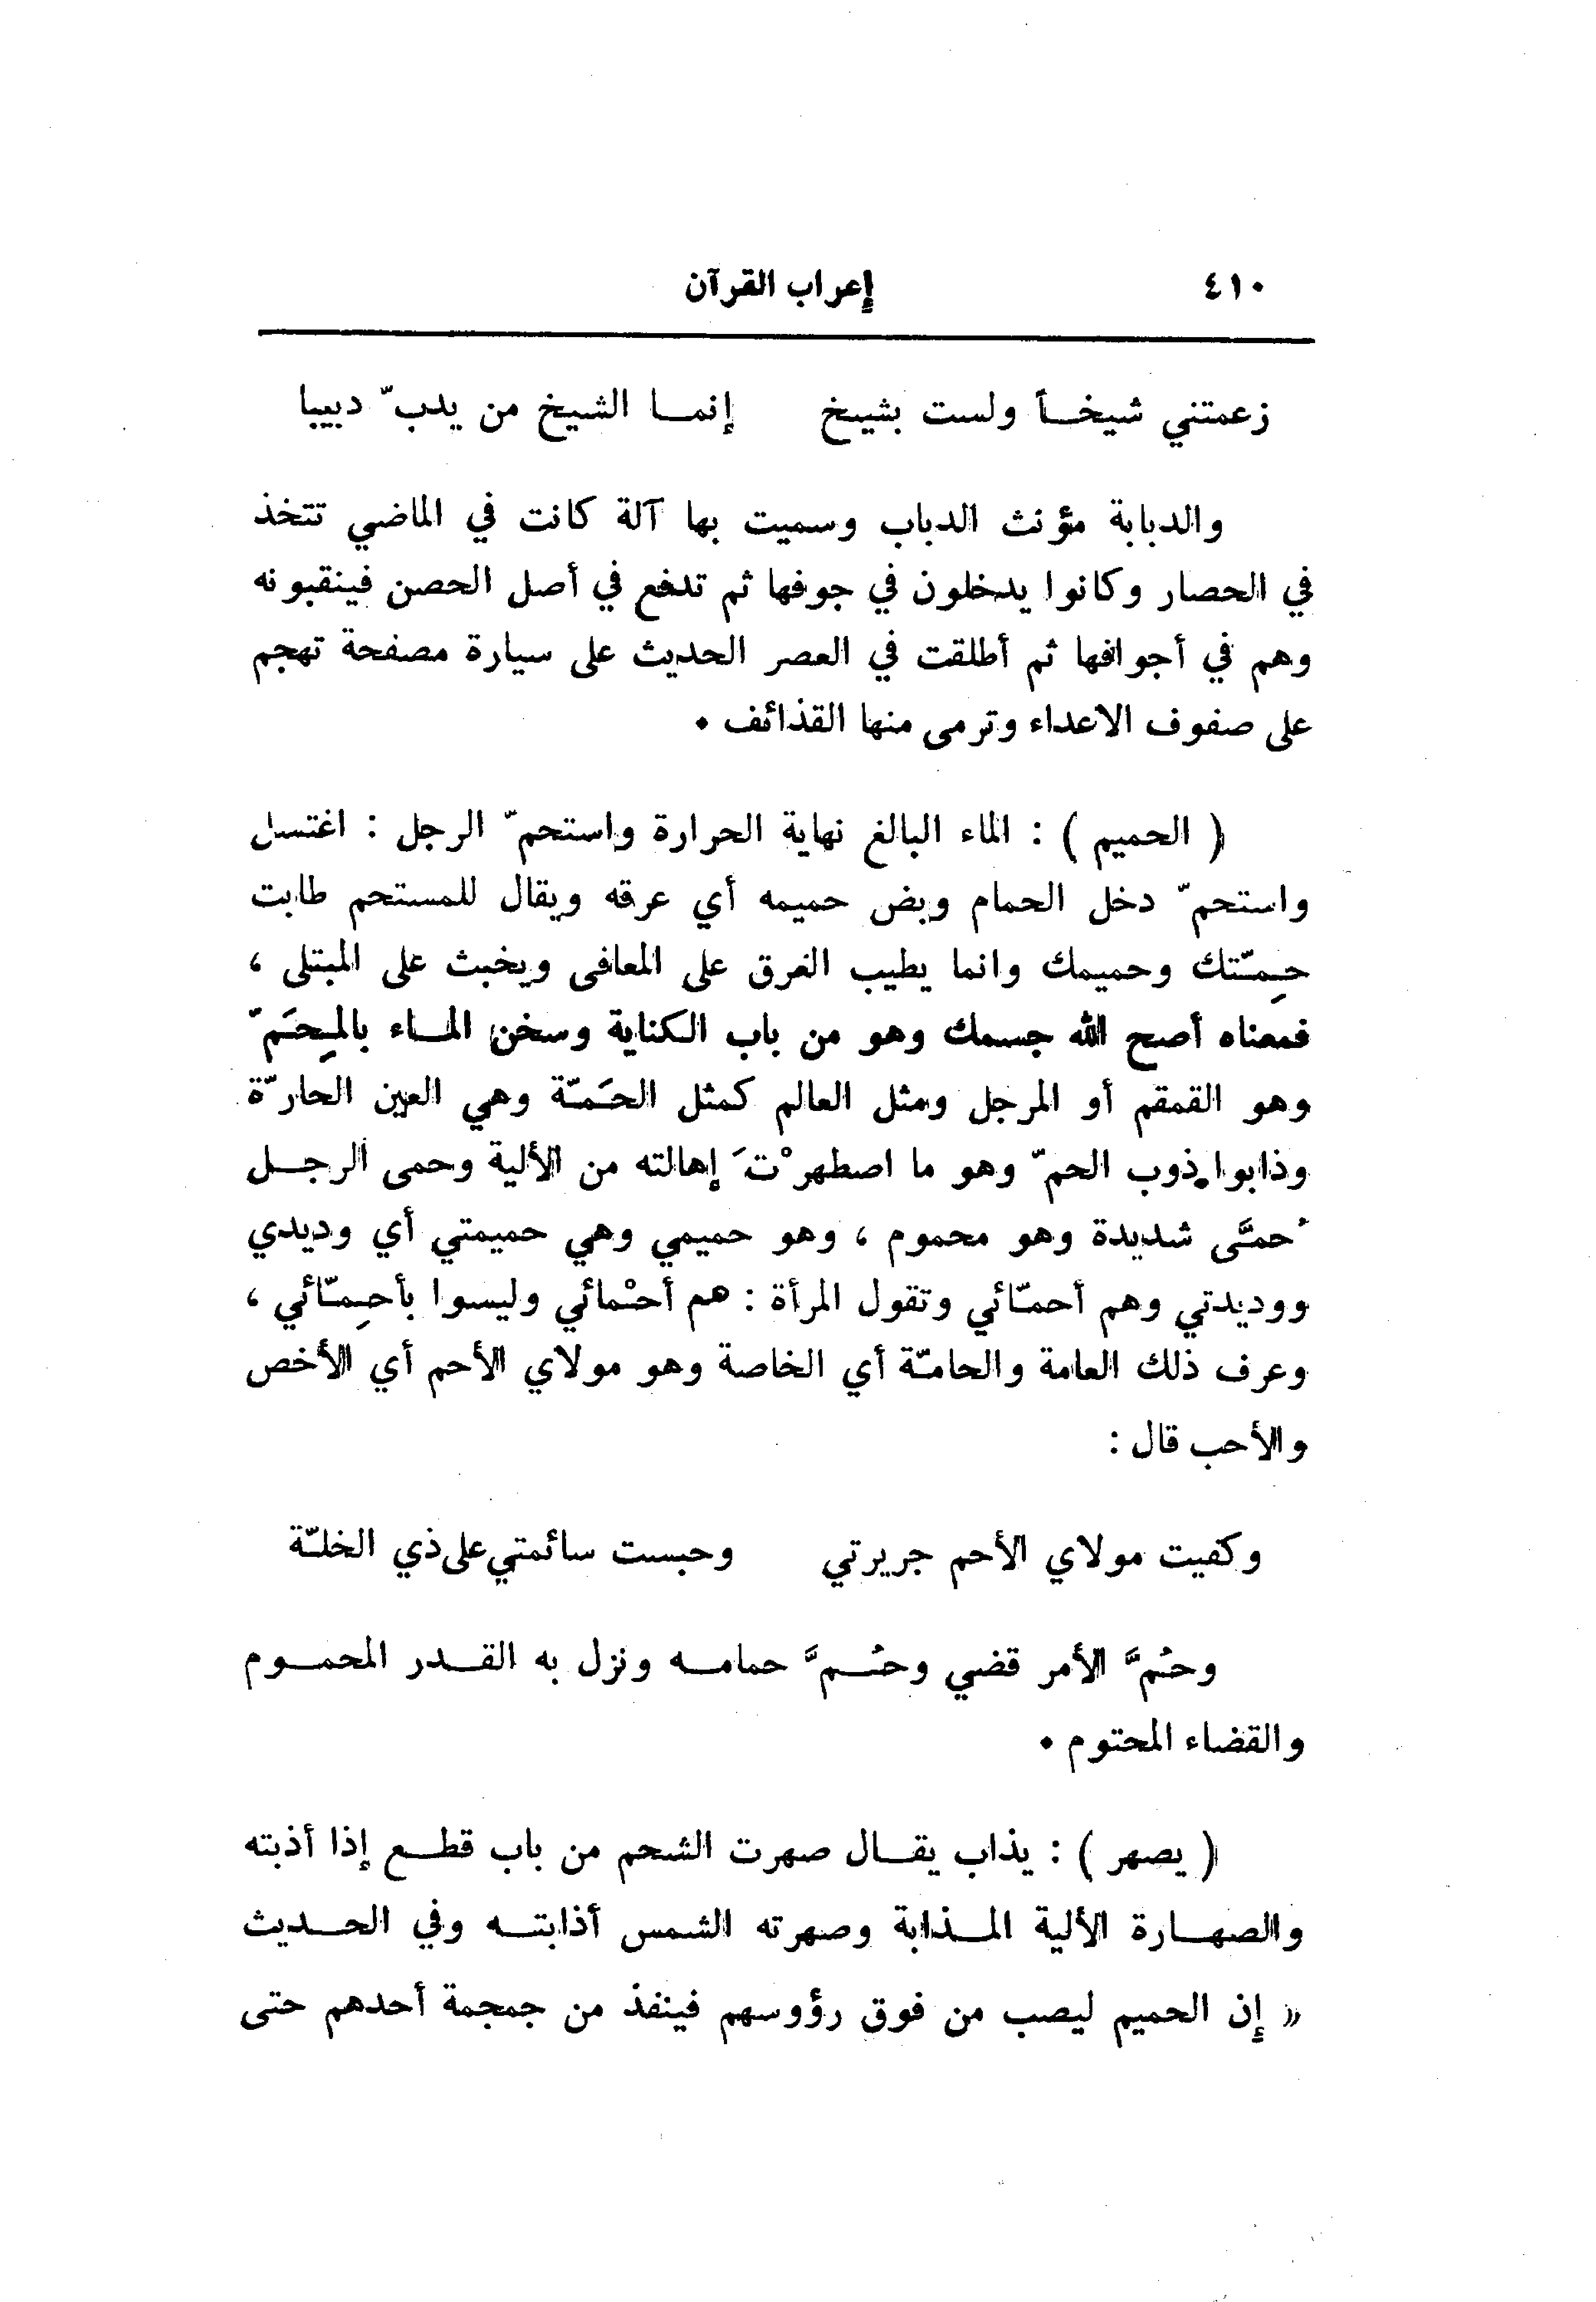 ٤١٠ إعراب القرآن
زعمتني شيخاً ولست بشيخ إنما الشيخ من يدبّ دبيبا
والدبابة مؤنث الدباب وسميت بها آلة كانت في الماضي تتخذ
في الحصار وكانوا يدخلون في جوفها ثم تدفع في أصل الحصن فينقبونه
وهم في أجوافها ثم أطلقت في العصر الحديث على سيارة مصفحة تهجم
على صفوف الاعداء وترمى منها القذائف .
( الحميم ) : الماء البالغ نهاية الحرارة واستحمّ الرجل : اغتسل
واستحمّ دخل الحمام وبض حميمه أي عرقه ويقال للمستحم طابت
حِمّتك وحميمك وانما يطيب العرق على المعافى ويخبث على المبتلى ،
فمعناه أصح الله جسمك وهو من باب الكناية وسخن الماء بالمِحَمّ
وهو القمقم أو المرجل ومثل العالم كمثل الحَمّة وهي العين الحارّة
وذابوا ذوب الحمّ وهو ما اصطهرْتَ إهالته من الألية وحمى الرجل
حُمَّى شديدة وهو محموم ، وهو حميمي وهي حميمتي أي وديدي
ووديدتي وهم أحمّائي وتقول المرأة : هم أحْمائي وليسوا بأحِمّائي ،
وعرف ذلك العامة والحامّة أي الخاصة وهو مولاي الأحم أي الأخص
والأحب قال :
وكفيت مولاي الأحم جريرتي وحبست سائمتي على ذي الخلّة
وحُمَّ الأمر قضي وحُمَّ حمامه ونزل به القدر المحموم
والقضاء المحتوم .
( يصهر ) : يذاب يقال صهرت الشحم من باب قطع إذا أذبته
والصهارة الألية المذابة وصهرته الشمس أذابته وفي الحديث
« إن الحميم ليصب من فوق رؤوسهم فينفذ من جمجمة أحدهم حتى